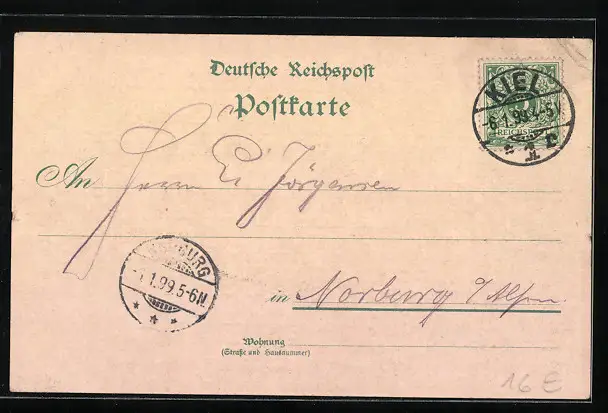 Deutsche Reichspost
Postkarte
KIEL
-6.1.99.4-5
REICHSPOST
An Herrn Jörgensen
BURG
.1.99.5-6N.
in Norburg a/Alsen
Wohnung
(Straße und Hausnummer)
16 E